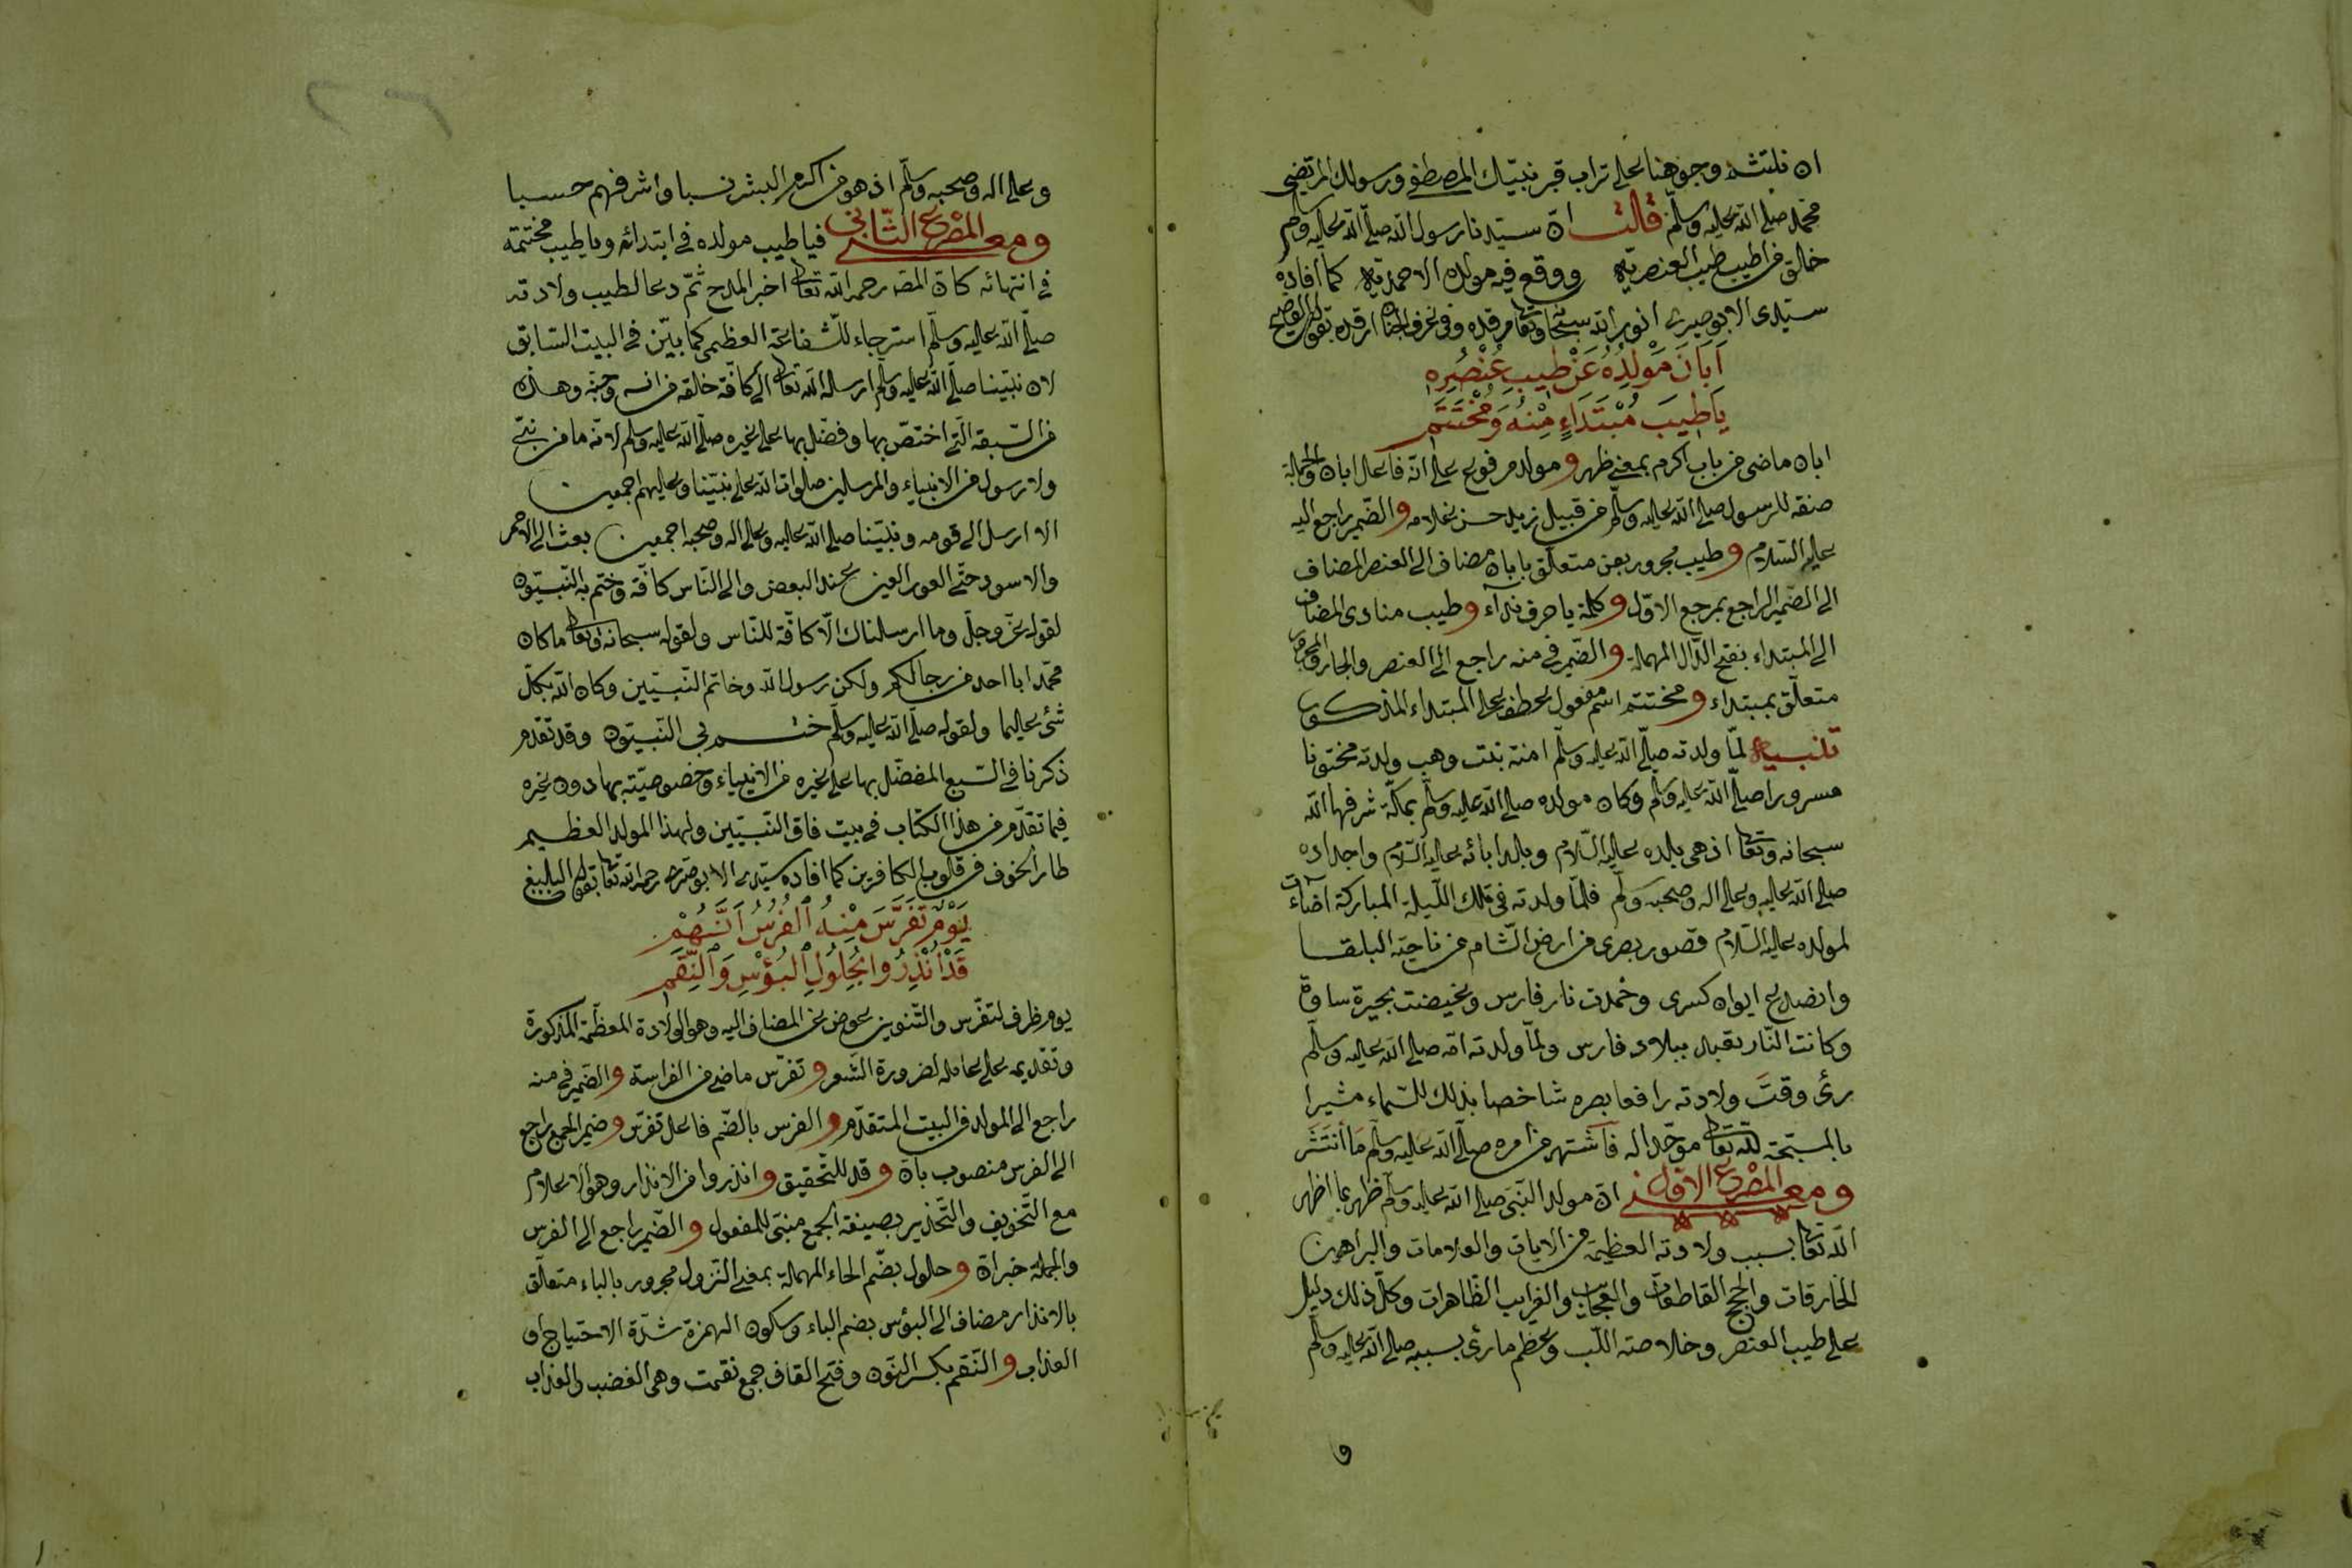 ان نلتثم وجوهنا على تراب قبر نبيّك المصطفى ورسولك المرتضى
محمد صلى الله عليه وسلم قالت انّ سيدنا رسول الله صلّى الله عليه وسلم
خالق من اطيب طيب العنصريّة ووقع فيه مولده الاحمديّة كما افاده
سيّدى الابوصيرى انور الله سبحانه وتعالى مرقده وفى غرف الجنان ارقده بقوله الفصيح
اَبَانَ مَوْلِدُهُ عَنْ طِيبِ عُنْصُرِهِ
يَاطِيبَ مُبْتَدَاءٍ مِنْهُ وَمُخْتَتَمِ
ابان ماضى من باب اكرم بمعنى ظهر و مولد مرفوع على انّه فاعل ابان والجملة
صفة للرسول صلى الله عليه وسلّم من قبيل زيد حسن غلامه والضّمير راجع اليه
عليه السّلام و طيب مجرور بعن متعلّق بابان مضاف الى العنصر المضاف
الى الضمير الراجع بمرجع الاوّل و كلمة يا حرف نداء و طيب منادى المضاف
الى المبتداء بفتح الدّال المهملة و الضّمير فى منه راجع الى العنصر والجار والمجرور
متعلّق بمبتداء و مختتم اسم مفعول عطف على المبتداء المذكور
تنبيه لمّا ولدته صلّى الله عليه وسلّم امنة بنت وهب ولدته مختونا
مسرورا صلّى الله عليه وسلم وكان مولده صلى الله عليه وسلّم بمكّة شرفها الله
سبحانه وتعالى اذ هى بلده عليه السّلام وبلد ابائه عليه السّلام واجداده
صلى الله عليه وعلى اله وصحبه وسلّم فلمّا ولدته فى تلك اللّيلة المباركة اضاءت
لمولده عليه السّلام قصور بصرى من ارض الشّام من ناحية البلقا
وانصدع ايوان كسرى وخمدت نار فارس وغيضت بحيرة ساوة
وكانت النّار تعبد ببلاد فارس ولمّا ولدته امّه صلى الله عليه وسلّم
رئى وقت ولادته رافعا بصره شاخصا بذلك للسّماء مشيرا
بالمسبّحة لله تعالى موحّدا له فاشتهر من امره صلّى الله عليه وسلم ما انتشر
ومع المصرع الاوّل انّ مولد النّبىّ صلى الله عليه وسلّم ظهر بما اظهر
الله تعالى بسبب ولادته العظيمة من الايات والعلامات والبراهين
الخارقات والحجج القاطعات والعجايب والغرايب الظّاهرات وكلّ ذلك دليل
على طيب العنصر وخلاصته اللّب وعظم ما رئى بسببه صلى الله عليه وسلّم
و
وعلى اله وصحبه وسلّم اذ هو من اكرم البشر نسبا واشرفهم حسبا
ومع المصرع الثّانى فياطيب مولده فى ابتدائه وياطيب مختتمه
فى انتهائه كانّ المصـ رحمه الله تعالى اخبر المدح ثمّ دعا لطيب ولادته
صلّى الله عليه وسلّم استرجاء للشّفاعة العظمى كما بيّن فى البيت السّابق
لان نبيّنا صلّى الله عليه وسلم ارسله الله تعالى الى كافّة خالقه من انسه وجنّه وهذه
من السّبقة الّتى اختصّ بها وفضّل بها على غيره صلّى الله عليه وسلم لانّه ما من نبىّ
ولا رسول من الانبياء والمرسلين صلوات الله على نبيّنا وعليهم اجمعين
الا ارسل الى قومه ونبيّنا صلى الله عليه وعلى اله وصحبه اجمعين بعث الى الاحمر
والاسود حتّى العور العين عند البعض والى النّاس كافّة وختم به النّبيّون
لقوله عزّ وجلّ وما ارسلناك الّا كافّة للنّاس ولقوله سبحانه وتعالى ما كان
محمّد ابا احد من رجالكم ولكن رسول الله وخاتم النّبيّين وكان الله بكلّ
شئ عليما ولقوله صلّى الله عليه وسلّم ختم بى النّبيّون وقد تقدّم
ذكرنا فى السّبع المفضّل بها على غيره من الانبياء وخصوصيّته بها دون غيره
فيما تقدّم من هذا الكتاب فى بيت فاق النّبيّين ولهذا المولد العظيم
طار الخوف فى قلوب الكافرين كما افاده سيّدى الابوصيرى رحمه الله تعالى بقوله البليغ
يَوْمٌ تَفَرَّسَ مِنْهُ الْفُرْسُ اَنَّهُمْ
قَدْ اُنْذِرُوا بِحُلُولِ الْبُؤْسِ وَالنِّقَمِ
يوم ظرف لتفرّس والتّنوين عوض عن المضاف اليه وهو الولادة المعظّمة المذكورة
وتقديمه على عامله لضرورة الشّعر و تفرّس ماضى من الفراسة و الضّمير فى منه
راجع الى المولد فى البيت المتقدّم و الفرس بالضّم فاعل تفرّس و ضمير الجمع راجع
الى الفرس منصوب بانّ و قد للتّحقيق و انذروا من الانذار وهو الاعلام
مع التّخويف والتّحذير بصيغة الجمع مبنىّ للمفعول و الضّمير راجع الى الفرس
والجملة خبر انّ و حلول بضّم الحاء المهملة بمعنى النّزول مجرور بالباء متعلّق
بالانذار مضاف الى البؤس بضم الباء وسكون الهمزة شدّة الاحتياج او
العذاب و النّقم بكسر النّون وفتح القاف جمع نقمت وهى الغضب والعذاب